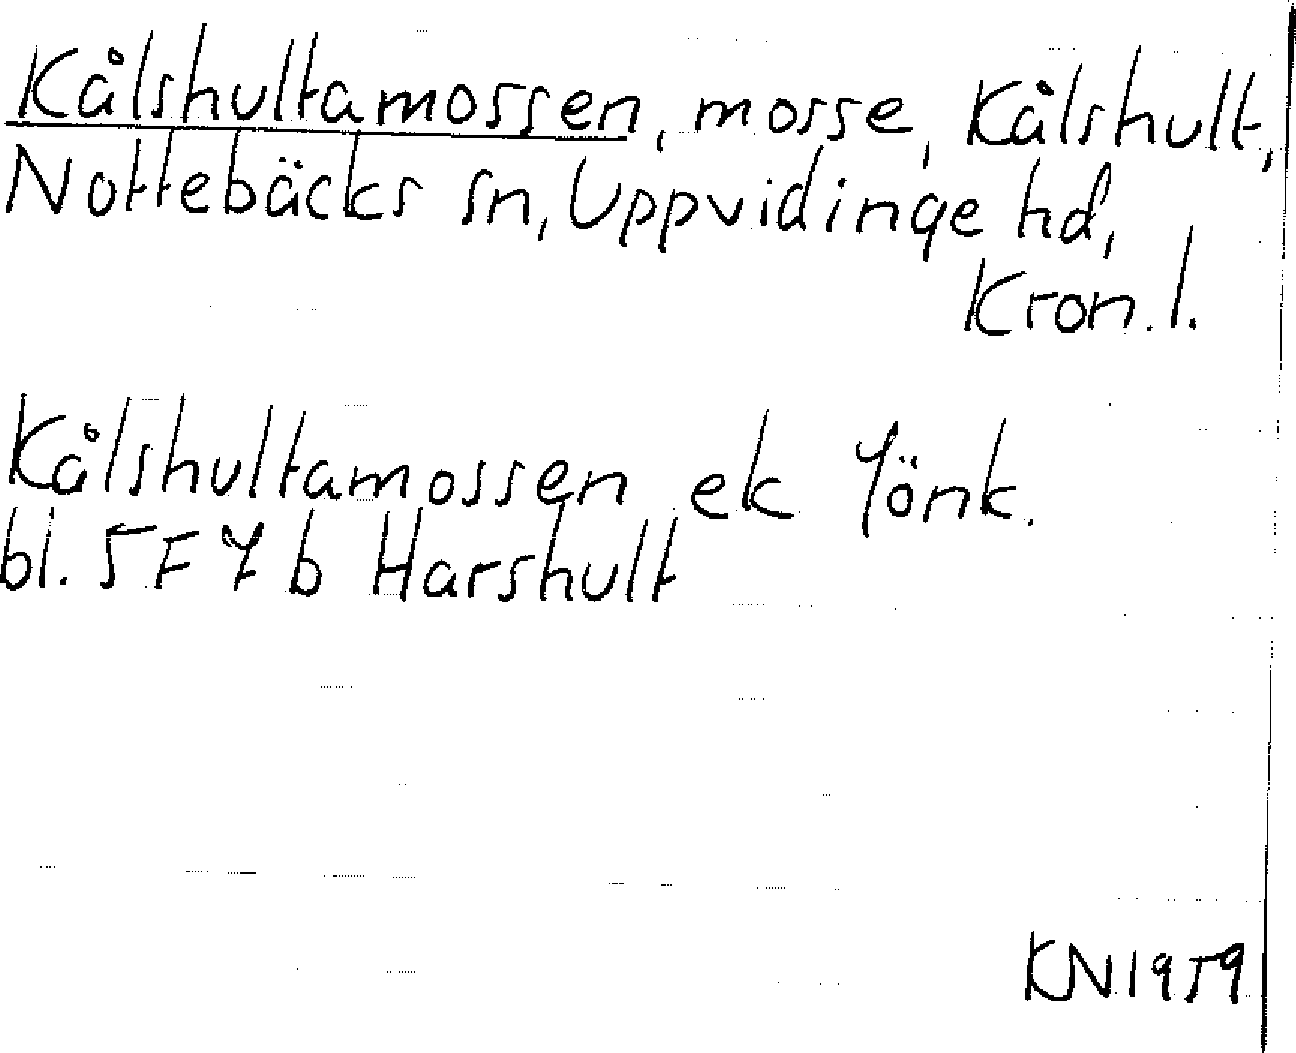 Kålshultamossen, mosse, Kålshult,
Nottebäcks sn, Uppvidinge hd,
Kron. l.
Kålshultamossen ek Jönk.
bl. 5 F 7 b Harshult
KN 1959